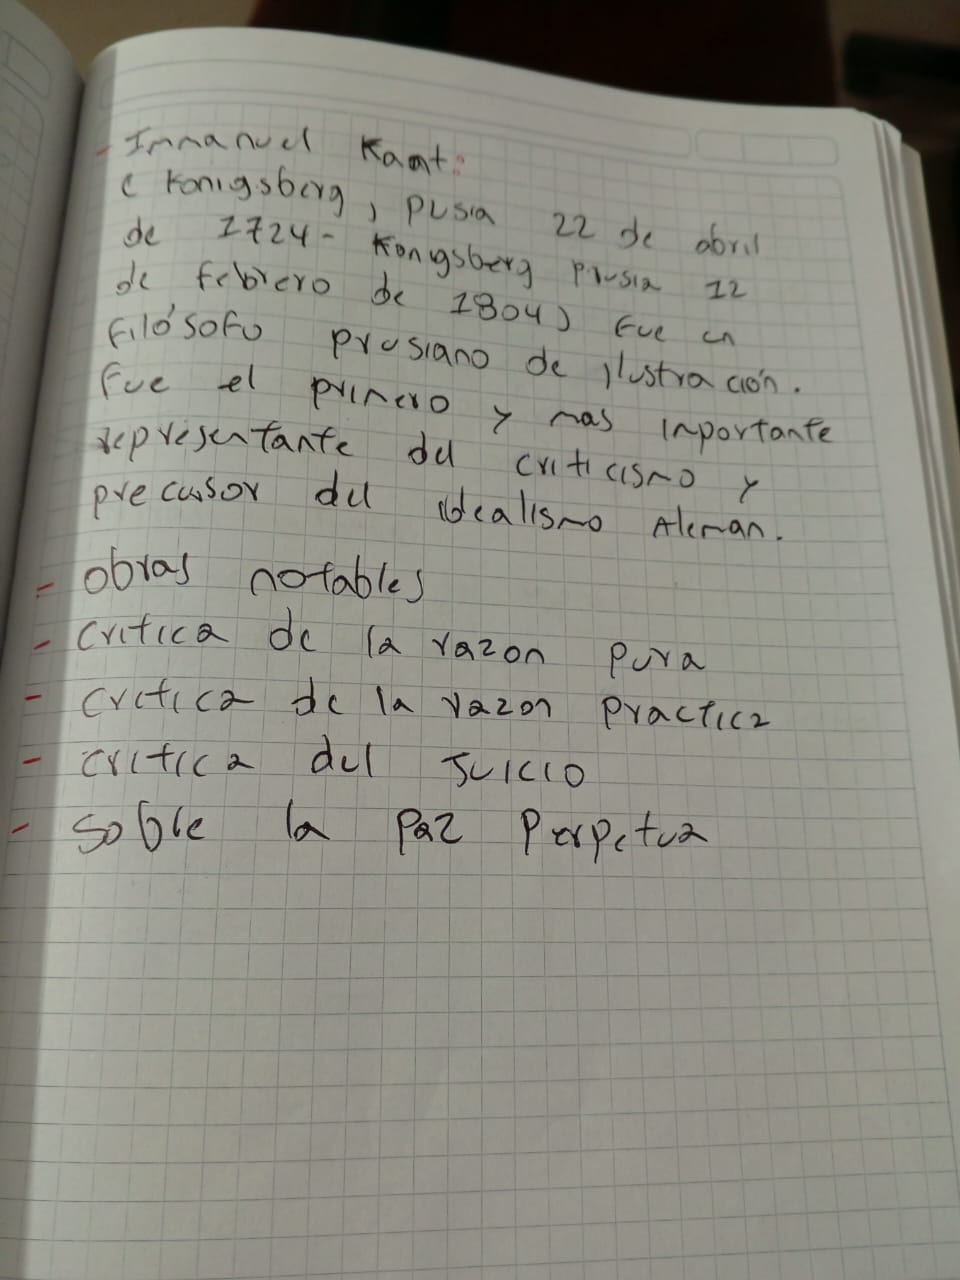 - Immanuel Kaant:
( Konigsberg, Pusia 22 de abril
de 1724 - Kongsberg Prusia 12
de febrero de 1804) Fue un
Filósofo prusiano de ilustración.
Fue el primero y mas importante
representante del criticismo y
precusor del idealismo Aleman.
- obras notables
- critica de la razon pura
- critica de la razon practica
- critica del Juicio
- Sobre la Paz Perpetua